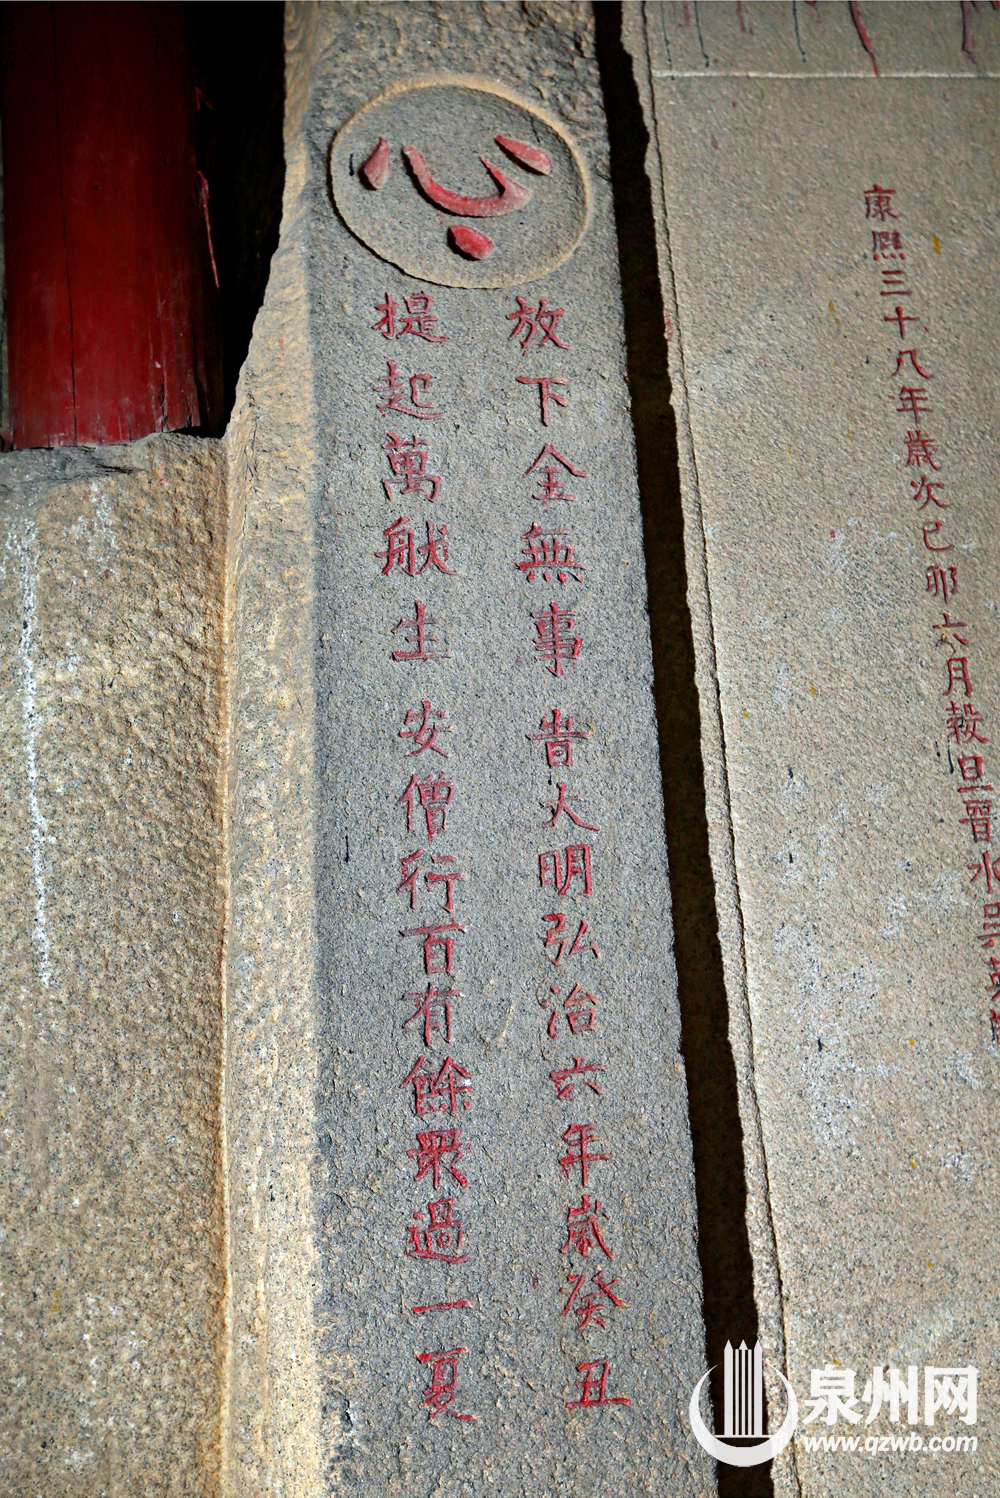 康熙三十八年歲次己卯六月穀旦晉水
心
放下全無事 旹大明弘治六年歲癸丑
提起萬般生 安僧行百有餘眾過一夏
泉州网
www.qzwb.com